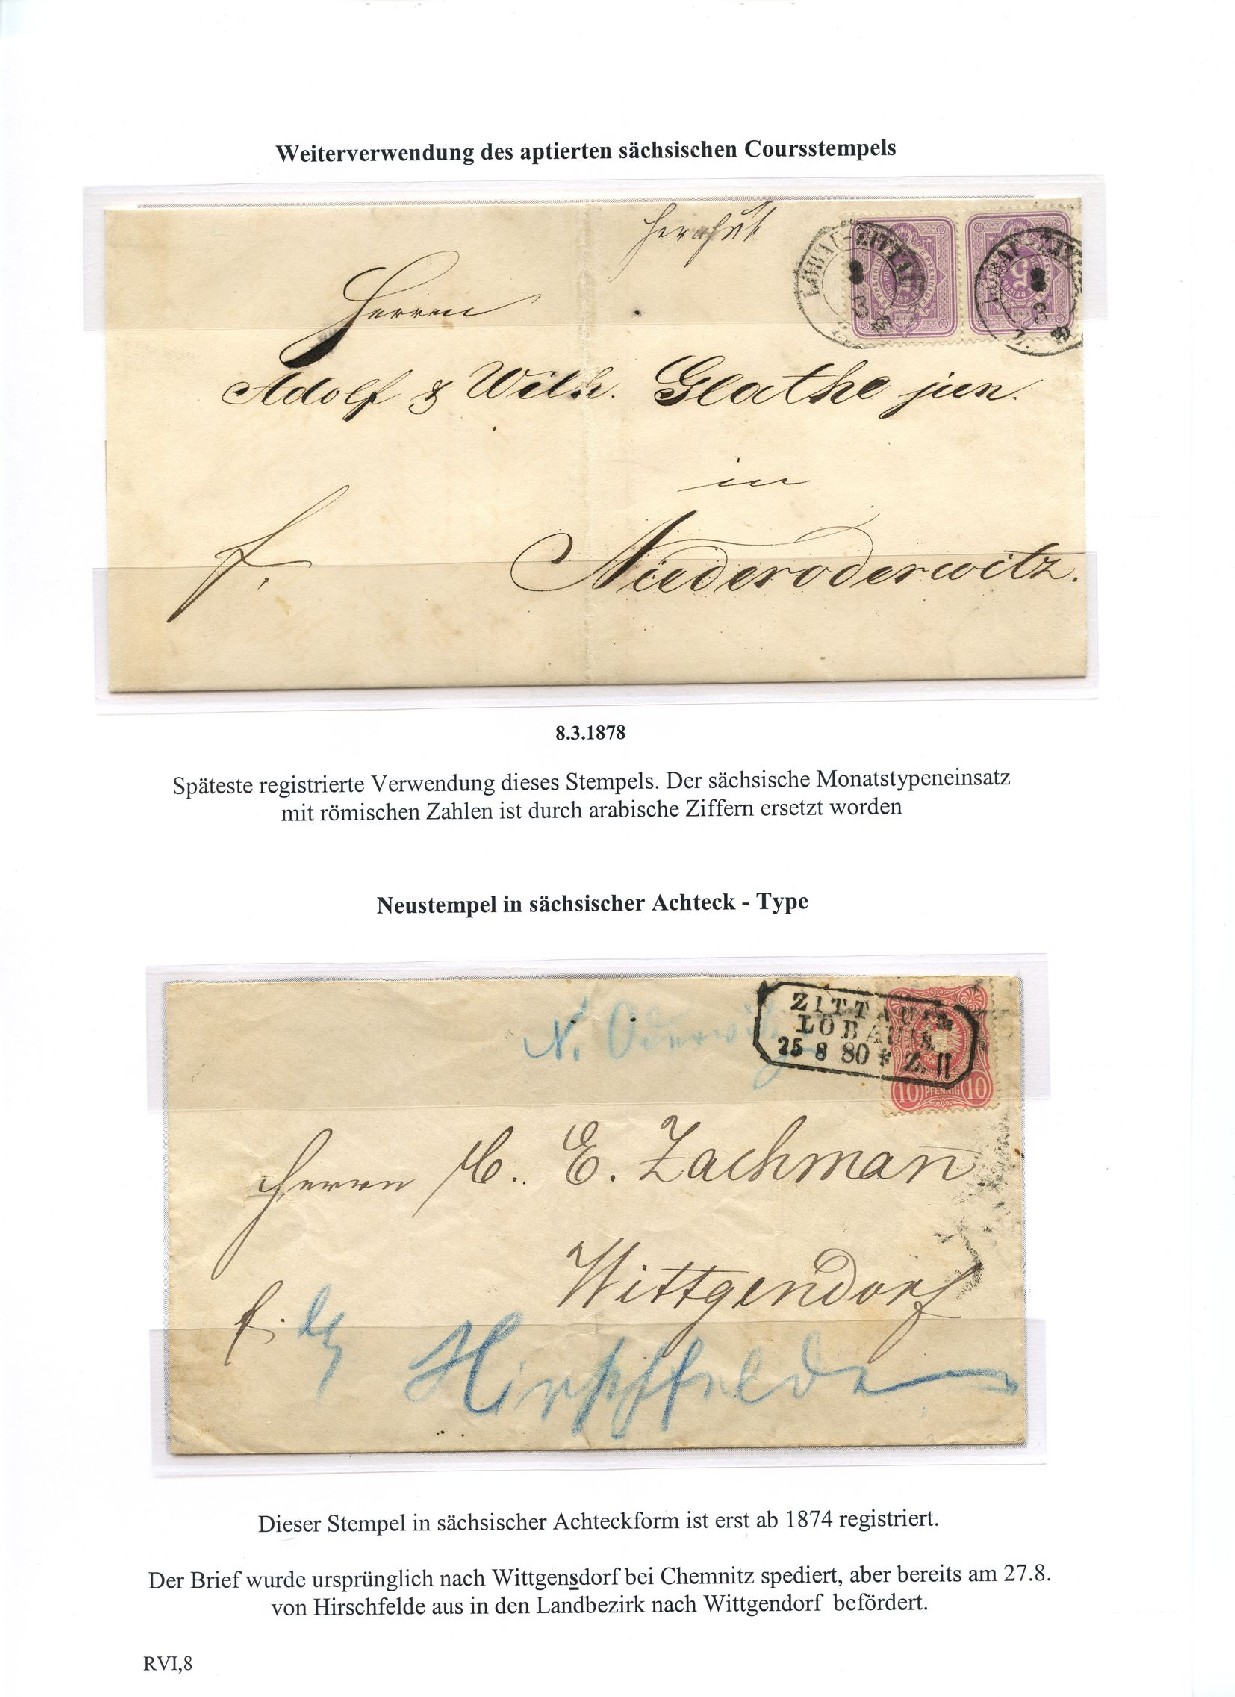 Weiterverwendung des aptierten sächsischen Coursstempels
Herrnhut
LÖBAU-ZITTAU
8
3
Z.
LÖBAU-ZITTAU
8
3
Z.
Herren
Adolf & Wilh. Glathe jun.
in
Niederoderwitz.
f.
8.3.1878
Späteste registrierte Verwendung dieses Stempels. Der sächsische Monatstypeneinsatz
mit römischen Zahlen ist durch arabische Ziffern ersetzt worden
Neustempel in sächsischer Achteck - Type
N. Oderwitz
ZITTAU
LÖBAU
25 8 80 * Z. II
10 PFENNIG 10
Herrn C. E. Zachman
Wittgendorf
f.
Hirschfelde
Dieser Stempel in sächsischer Achteckform ist erst ab 1874 registriert.
Der Brief wurde ursprünglich nach Wittgensdorf bei Chemnitz spediert, aber bereits am 27.8.
von Hirschfelde aus in den Landbezirk nach Wittgendorf befördert.
RVI,8